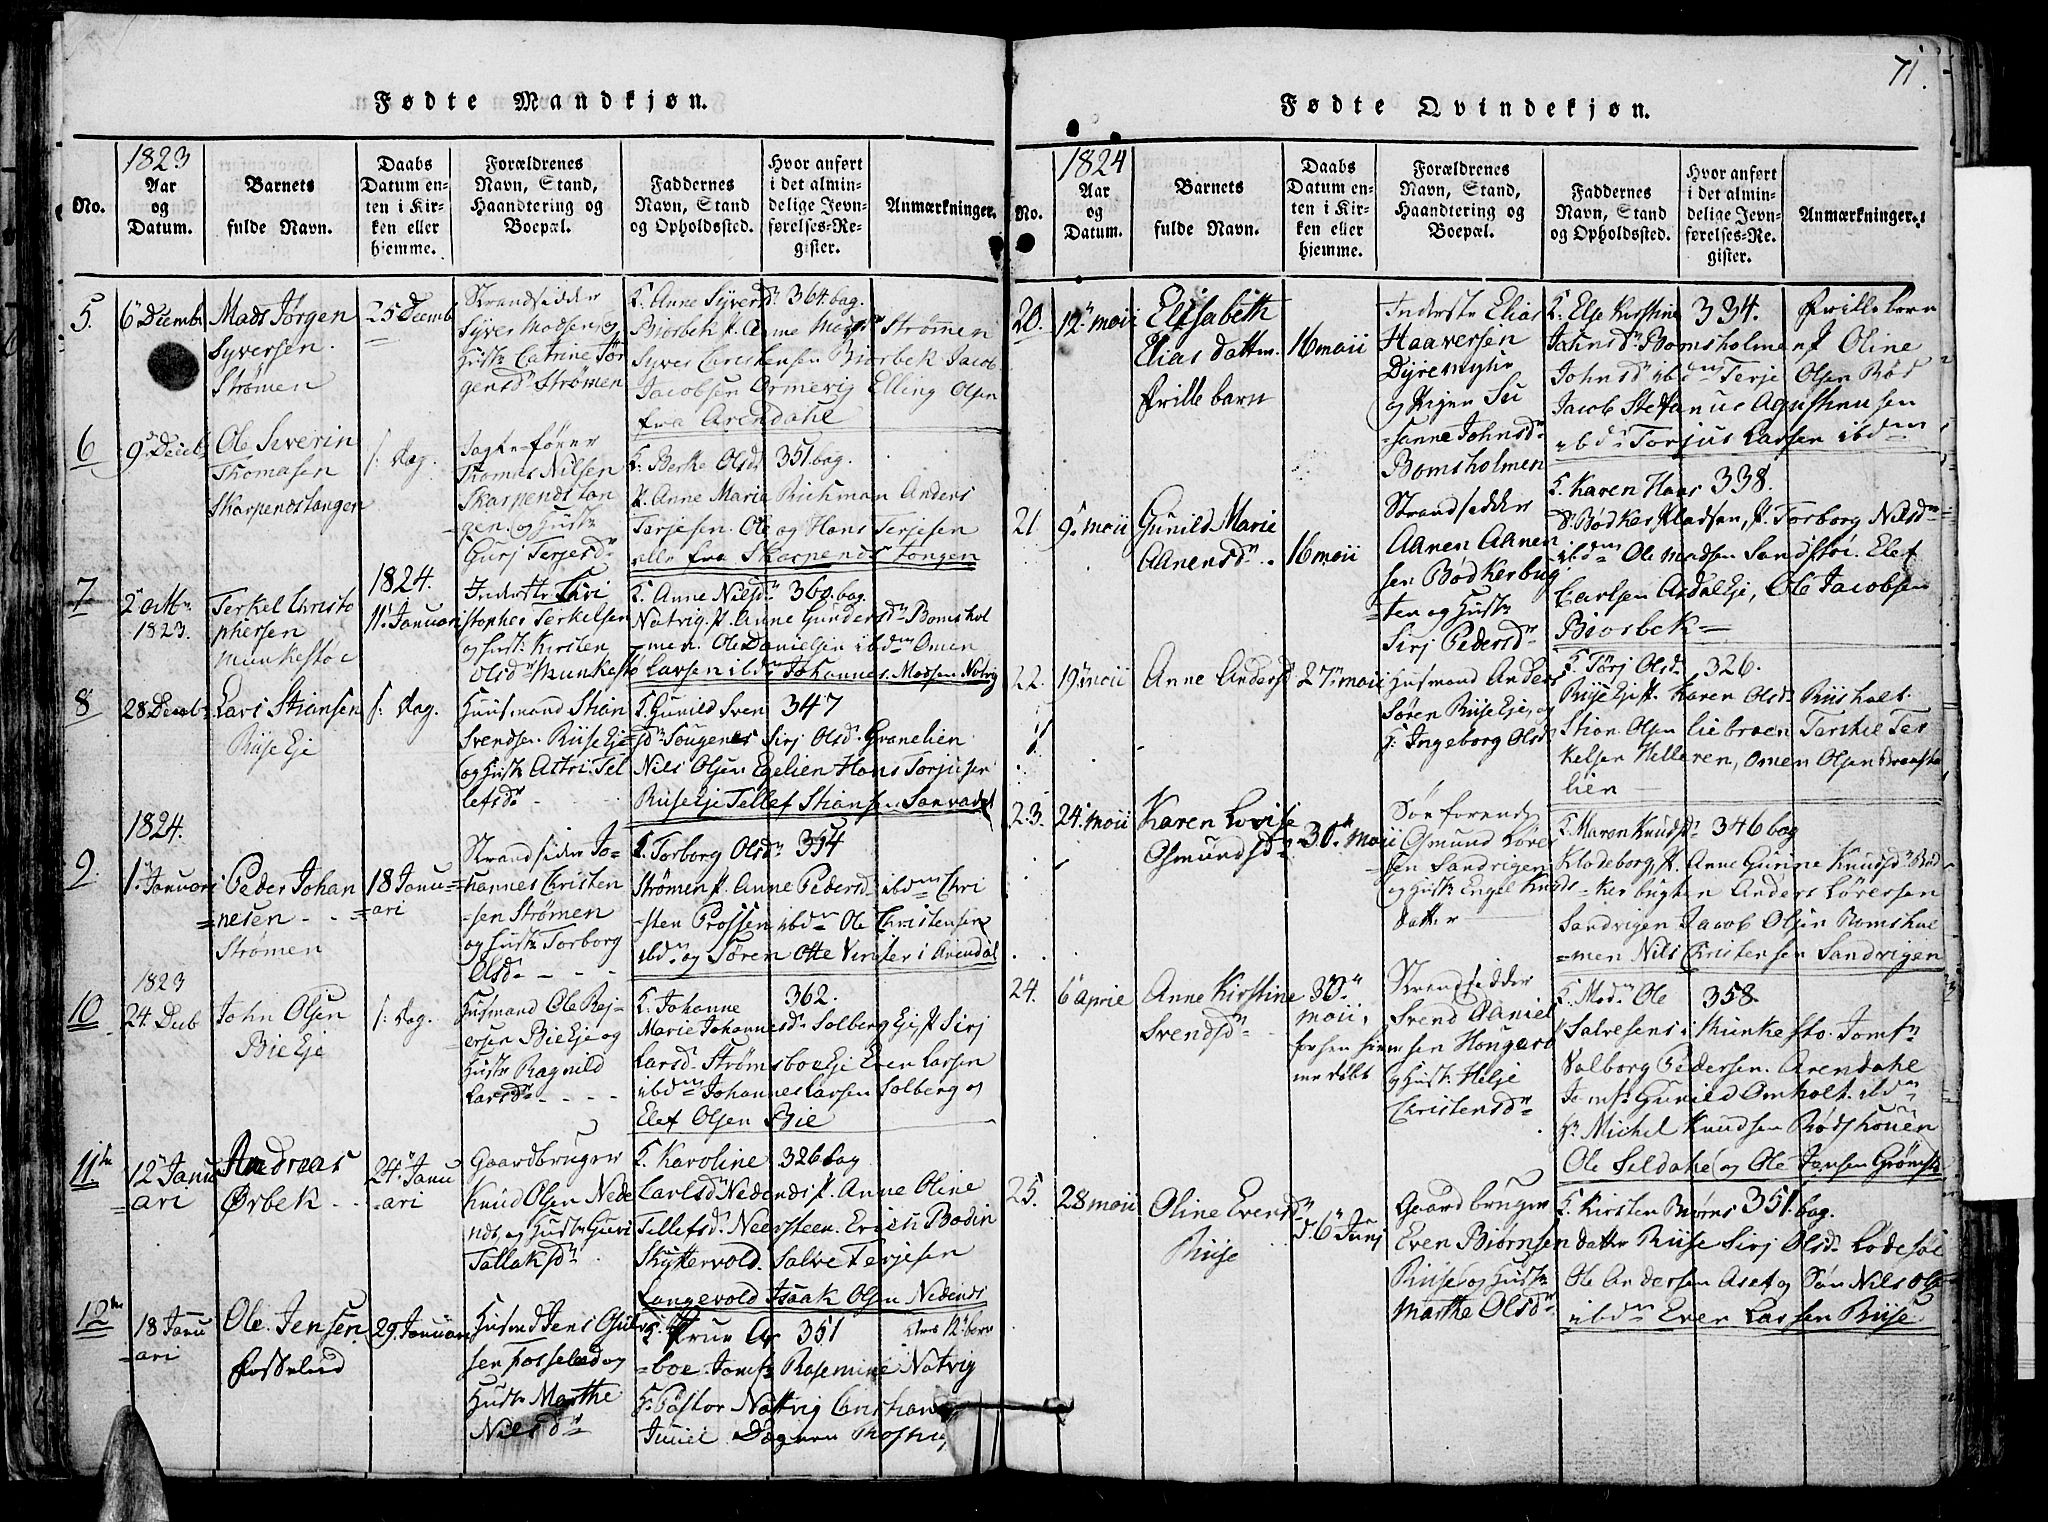 71.
Fødte Mandkjøn.
No.
1823
Aar
og
Datum.
Barnets
fulde Navn.
Daabs
Datum en-
ten i Kir-
ken eller
hjemme.
Forældrenes
Navn, Stand,
Haandtering og
Boepæl.
Faddernes
Navn, Stand
og Opholdssted.
Hvor anført
i det almin-
delige Jevn-
førelses-Re-
gister.
Anmærkninger.
5.
6 Decemb
Mads Jørgen
Syversen
Strømen
25 Decemb
Strandsidder
Syver Madsen og
Hust: Catrine Jør
gensd. Strømen
F. Anne Syversd. 364. bag.
Biorbek P. Anne Strømen
Syver Christensen Biorbek Jacob
Jacobsen Ormevig Elling Olsen
fra Arendahl
6
9 Decb
Ole Severin
Thomasen
Skarpendstangen
s: dag.
Jagtefører
Thomas Nilsen
Skarpendstan
gen og Hust:
Gurj Terjesd.
F. Berthe Olsd. 351. bag.
P. Anne Maria Richman Anders
Tarjesen. Ole og Hans Terjesen
alle fra Skarpends Tangen
7
2 Octb
1823.
Terkel Christo
phersen
Munkestøe
1824.
11 Januari
Inderste Chri
stopher Terkelsen
og Hust: Kirsten
Olsd. Munkestø
F. Anne Nilsd. 360. bag.
Natvig. P. Anne Gundersd. Bomshol
men. Ole Danielsen ibdm Omen
Larsen ibdm Johannes Madsen Natvig
8
28 Decb
Lars Stiansen
Riise Eje
s: dag.
Huusmand Stian
Svendsen Riise Eje
og Hust: Astri Tel
lefsd.
F. Gunild Sven 347
sd. Sougenes Sirj Olsd. Granelien
Nils Olsen Egelien Hans Torjusen
Riise Eje Tellef Stiansen
1824.
9.
1 Januari
Peder Johan
nesen
Strømen
18 Janu=
ari
Strandsider Jo-
hannes Christen
sen Strømen
og Hust: Torborg
Olsd.
F. Torborg Olsd. 354
Strømen P. Anne Pedersd. ibdm Chri
sten Prossen ibdm Ole Christensen
ibdm og Søren Otte Vinter i Arendal
1823
10
24. Decb
John Olsen
Bie Eje
s: dag.
Husmand Ole Rej-
ersen Bie Eje og
Hust: Ragnild
Larsd.
F. Johanne 362.
Marie Johannesd. Solberg Eje P. Sirj
Larsd. Strømsboe Eje Even Larsen
ibdm Johannes Larsen Solberg og
Elef Olsen Bie
11te
12 Janu
ari
Andreas
Ørbek
24 Janu
ari
Gaardbruger
Knud Olsen Nede
nds, og Hust: Guri
Tallaksd.
F. Karoline 326 bag
Carlsd. Nedends P. Anne Oline
Tellefsd. Neersteen. Erich Bodin
Skyttervold. Salve Terjesen
Langevold Isaak Olsen Nedends
12te
18 Janu
ari
Ole Jensen
Fosselud
29 Januari
Husmd Jens
sen Fosselud og
Hust: Marthe
Nilsd.
F. Frue 351
boe. Jomf: Rasemine Natvig
F. Pastor Natvig
Fødte Qvindekjøn.
No.
1824
Aar
og
Datum.
Barnets
fulde Navn.
Daabs
Datum en-
ten i Kir-
ken eller
hjemme.
Forældrenes
Navn, Stand,
Haandtering og
Boepæl.
Faddernes
Navn, Stand
og Opholdssted.
Hvor anført
i det almin-
delige Jevn-
førelses-Re-
gister.
Anmærkninger.
20.
12 maii
Elisabeth
Elias datter
Frille barn
16 maii
Inderste Elias
Haaversen
Dyremyhr
og Pigen Su
sanne Johnsd.
Bomsholmen
F. Else Kirstine 334. Frille barn
Johnsd. Bomsholmen P. Oline
Johnsd. ibdm Terje Olsen Bød
Jacob Stefanus Agustinusen
ibd. Torjus Larsen ibdm
21.
9 maii
Gunild Marie
Aanensd.
16 maii
Strandsidder
Aanen Aanen
sen Bødkerbug
ten og Hust:
Sirj Pedersd.
F. Karen Hans 338.
d. Bødker Pladsen, P. Torborg Nilsd.
ibdm Ole Madsen Sandstøi. Elef
Carlsen Asdal Eje, Ole Jacobsen
Biorbek
22.
19 maii
Anne Andersd
27 maii
Husmand Anders
Søren Riise Eje, og
H: Ingeborg Olsd.
F. Tørj Olsd. 326.
Riise Eje P. Karen Olsd. Riisholt
Stian Olsen Liebroen Terkel Ter
kelsen Helleren, Omen Olsen
lien
23.
24. maii
Karen Lovise
Osmundsd.
30 Maii
Osmund Løre
sen Sandvigen
og Hust: Engel Knuds
datter
F. Maren Knudsd. 346 bag
Klodeborg P. Anne Gunne Knudsd. Bød
kerbugten Anders Lørensen
Sandvigen Jacob Olsen Bomshol
men Nils Christensen Sandvigen
24.
6 Aprile
Anne Kirstine
Svendsd.
30
maii,
forhen hiem
medøbt
Strandsidder
Svend Daniel
sen Hougers
og Hust: Helje
Christensd.
F. Mad. Ole 358.
Salvesens i Munkestø. Jomf
Valborg Pedersen. Arendahl
Jomf: Gunild Omholt. ibdm
Hr Michel Knudsen Rødshouen
Ole Seldahl og Ole Jensen Grømstø
25.
28 maii
Oline Evensd.
Riise
d. 6 Junj
Gaardbruger
Even Biørnsen
Riise og Hust:
Marthe Olsd.
F. Kirsten Biørns 351. bag.
datter Riise Sirj Olsd. Lødesøl
Ole Andersen Aset og Søn Nils Ols
ibdm Even Larsen Riise